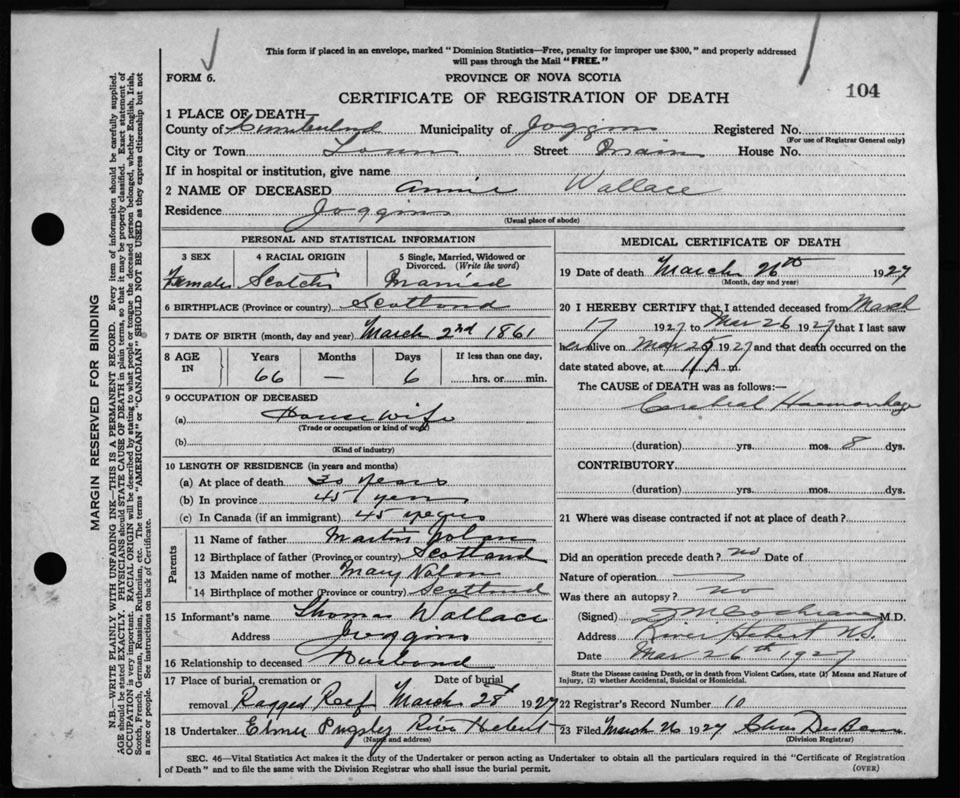 This form if placed in an envelope, marked "Dominion Statistics—Free, penalty for improper use $300," and properly addressed
will pass through the Mail "FREE."
FORM 6.
PROVINCE OF NOVA SCOTIA
104
CERTIFICATE OF REGISTRATION OF DEATH
1 PLACE OF DEATH—
County of Cumberland Municipality of Joggins Registered No.
(For use of Registrar General only)
City or Town Town Street Main House No.
If in hospital or institution, give name
2 NAME OF DECEASED Annie Wallace
Residence Joggins
(Usual place of abode)
PERSONAL AND STATISTICAL INFORMATION
3 SEX 4 RACIAL ORIGIN 5 Single, Married, Widowed or
Divorced. (Write the word)
Female Scotch Married
6 BIRTHPLACE (Province or country) Scotland
7 DATE OF BIRTH (month, day and year) March 2nd 1861
8 AGE IN Years Months Days If less than one day,
66 — 6 hrs. or min.
9 OCCUPATION OF DECEASED
(a) House wife
(Trade or occupation or kind of work)
(b)
(Kind of industry)
10 LENGTH OF RESIDENCE (in years and months)
(a) At place of death 30 years
(b) In province 45 years
(c) In Canada (if an immigrant) 45 years
Parents
11 Name of father Martin
12 Birthplace of father (Province or country) Scotland
13 Maiden name of mother Mary
14 Birthplace of mother (Province or country) Scotland
15 Informant's name Thomas Wallace
Address Joggins
16 Relationship to deceased Husband
17 Place of burial, cremation or Date of burial
removal Ragged Reef March 28 1927
18 Undertaker Elmer Pugsley River Hebert
(Name and address)
MEDICAL CERTIFICATE OF DEATH
19 Date of death March 26th 1927
(Month, day and year)
20 I HEREBY CERTIFY that I attended deceased from March
17 1927 to Mar 26 1927 that I last saw
her alive on Mar 25 1927 and that death occurred on the
date stated above, at 11 A m.
The CAUSE OF DEATH was as follows:—
Cerebral Haemorrhage
(duration) yrs. mos. 8 dys.
CONTRIBUTORY
(duration) yrs. mos. dys.
21 Where was disease contracted if not at place of death?
Did an operation precede death? no Date of
Nature of operation —
Was there an autopsy? no
(Signed) Cochrane M.D.
Address River Hebert N.S.
Date Mar 26th 1927
State the Disease causing Death, or in death from Violent Causes, state (1) Means and Nature of
Injury, (2) whether Accidental, Suicidal or Homicidal.
22 Registrar's Record Number 10
23 Filed March 26 1927
(Division Registrar)
SEC. 46—Vital Statistics Act makes it the duty of the Undertaker or person acting as Undertaker to obtain all the particulars required in the "Certificate of Registration
of Death" and to file the same with the Division Registrar who shall issue the burial permit.
(OVER)
MARGIN RESERVED FOR BINDING
N.B.—WRITE PLAINLY WITH UNFADING INK—THIS IS A PERMANENT RECORD. Every item of information should be carefully supplied.
AGE should be stated EXACTLY. PHYSICIANS should STATE CAUSE OF DEATH in plain terms, so that it may be properly classified. Exact statement of
OCCUPATION is very important. RACIAL ORIGIN will be described by stating to what people or tongue the deceased person belonged, whether English, Irish,
Scotch, French, German, Russian, Ruthenian, etc. The terms "AMERICAN" or "CANADIAN" SHOULD NOT BE USED as they express citizenship but not
a race or people. See instructions on back of Certificate.